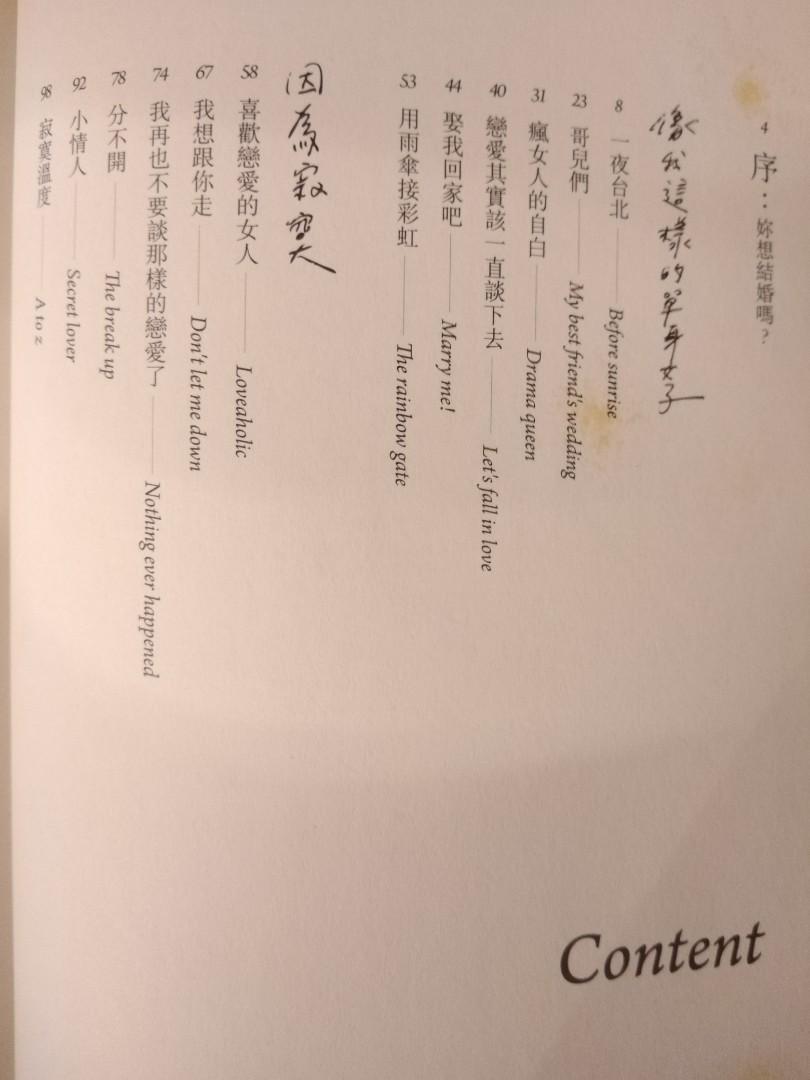 Content
4 序：妳想結婚嗎？
像我這樣的單身女子
8 一夜台北——Before sunrise
23 哥兒們——My best friend's wedding
31 瘋女人的自白——Drama queen
40 戀愛其實該一直談下去——Let's fall in love
44 娶我回家吧——Marry me!
53 用雨傘接彩虹——The rainbow gate
因為寂寞
58 喜歡戀愛的女人——Loveaholic
67 我想跟你走——Don't let me down
74 我再也不要談那樣的戀愛了——Nothing ever happened
78 分不開——The break up
92 小情人——Secret lover
98 寂寞溫度——A to z